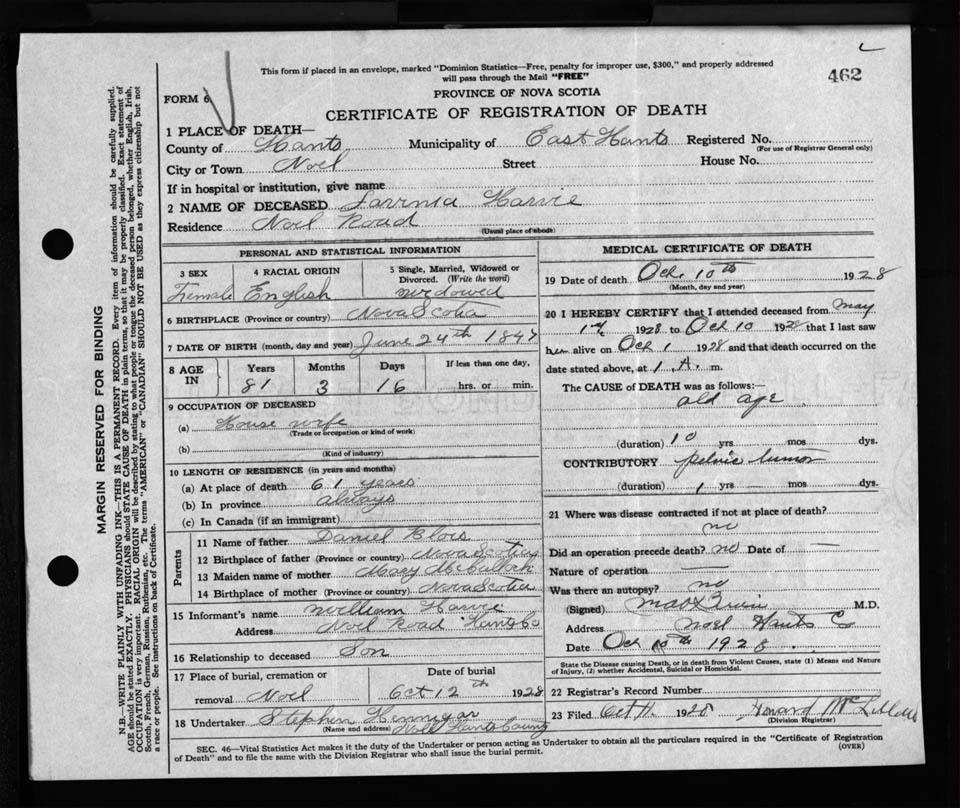 This form if placed in an envelope, marked "Dominion Statistics—Free, penalty for improper use, $300," and properly addressed
will pass through the Mail "FREE"
462
PROVINCE OF NOVA SCOTIA
FORM 6
CERTIFICATE OF REGISTRATION OF DEATH
1 PLACE OF DEATH—
County of Hants Municipality of East Hants Registered No.
(For use of Registrar General only)
City or Town Noel Street House No.
If in hospital or institution, give name
2 NAME OF DECEASED Lavinia Harvie
Residence Noel Road
(Usual place of abode)
PERSONAL AND STATISTICAL INFORMATION
3 SEX Female
4 RACIAL ORIGIN English
5 Single, Married, Widowed or
Divorced. (Write the word)
widowed
6 BIRTHPLACE (Province or country) Nova Scotia
7 DATE OF BIRTH (month, day and year) June 24th 1847
8 AGE IN Years Months Days If less than one day,
81 3 16 hrs. or min.
9 OCCUPATION OF DECEASED
(a) House wife
(Trade or occupation or kind of work)
(b)
(Kind of industry)
10 LENGTH OF RESIDENCE (in years and months)
(a) At place of death 61 years
(b) In province always
(c) In Canada (if an immigrant)
Parents
11 Name of father Daniel Blois
12 Birthplace of father (Province or country) Nova Scotia
13 Maiden name of mother Mary McCulloch
14 Birthplace of mother (Province or country) Nova Scotia
15 Informant's name William Harvie
Address Noel Road Hants Co
16 Relationship to deceased Son
17 Place of burial, cremation or Date of burial
removal Noel Oct 12th 1928
18 Undertaker Stephen Hennigar
(Name and address) Noel Hants County
MEDICAL CERTIFICATE OF DEATH
19 Date of death Oct. 10th 1928
(Month, day and year)
20 I HEREBY CERTIFY that I attended deceased from May
1928 to Oct 10 1928 that I last saw
her alive on Oct 1 1928 and that death occurred on the
date stated above, at 1 A. m.
The CAUSE OF DEATH was as follows:—
old age
(duration) 10 yrs mos dys.
CONTRIBUTORY pelvic tumor
(duration) 1 yrs — mos dys.
21 Where was disease contracted if not at place of death?
no
Did an operation precede death? no Date of —
Nature of operation —
Was there an autopsy? no
(Signed) M.D.
Address Noel Hants Co
Date Oct 1928
State the Disease causing Death, or in death from Violent Causes, state (1) Means and Nature
of Injury, (2) whether Accidental, Suicidal or Homicidal.
22 Registrar's Record Number
23 Filed Oct 1928 Howard
(Division Registrar)
SEC. 46—Vital Statistics Act makes it the duty of the Undertaker or person acting as Undertaker to obtain all the particulars required in the "Certificate of Registration
of Death" and to file the same with the Division Registrar who shall issue the burial permit.
(OVER)
MARGIN RESERVED FOR BINDING
N.B.—WRITE PLAINLY WITH UNFADING INK—THIS IS A PERMANENT RECORD. Every item of information should be carefully supplied.
AGE should be stated EXACTLY. PHYSICIANS should STATE CAUSE OF DEATH in plain terms, so that it may be properly classified. Exact statement of
OCCUPATION is very important. RACIAL ORIGIN will be described by stating to what people or tongue the deceased person belonged, whether English, Irish,
Scotch, French, German, Russian, Ruthenian, etc. The terms "AMERICAN" or "CANADIAN" SHOULD NOT BE USED as they express citizenship but not
a race or people. See instructions on back of Certificate.